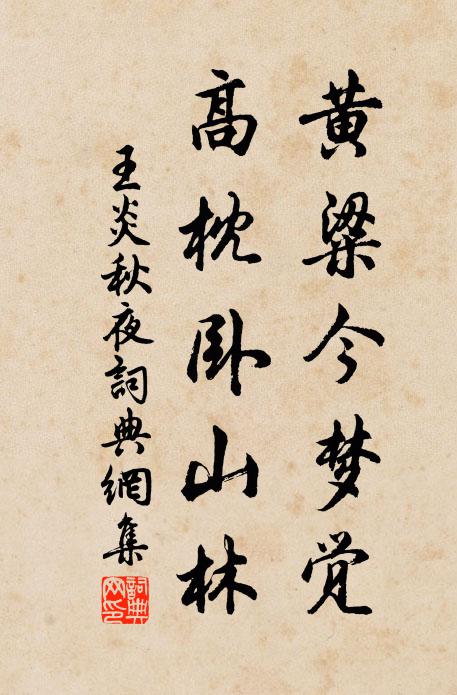 黄粱今梦觉
高枕卧山林
王炎秋夜詞典網集
詞典网印